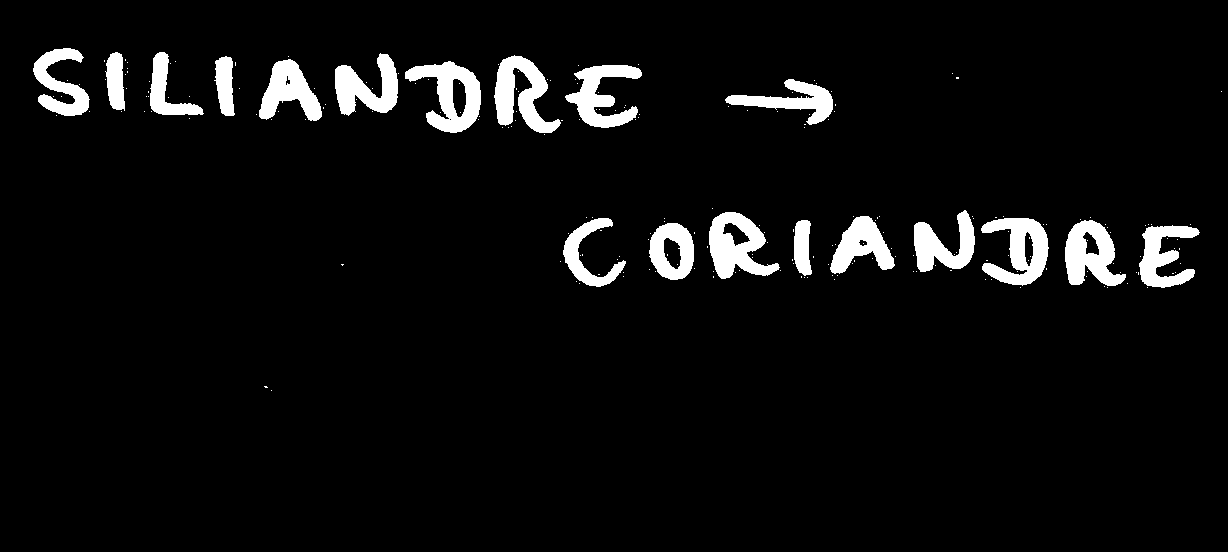 SILIANDRE →
CORIANDRE